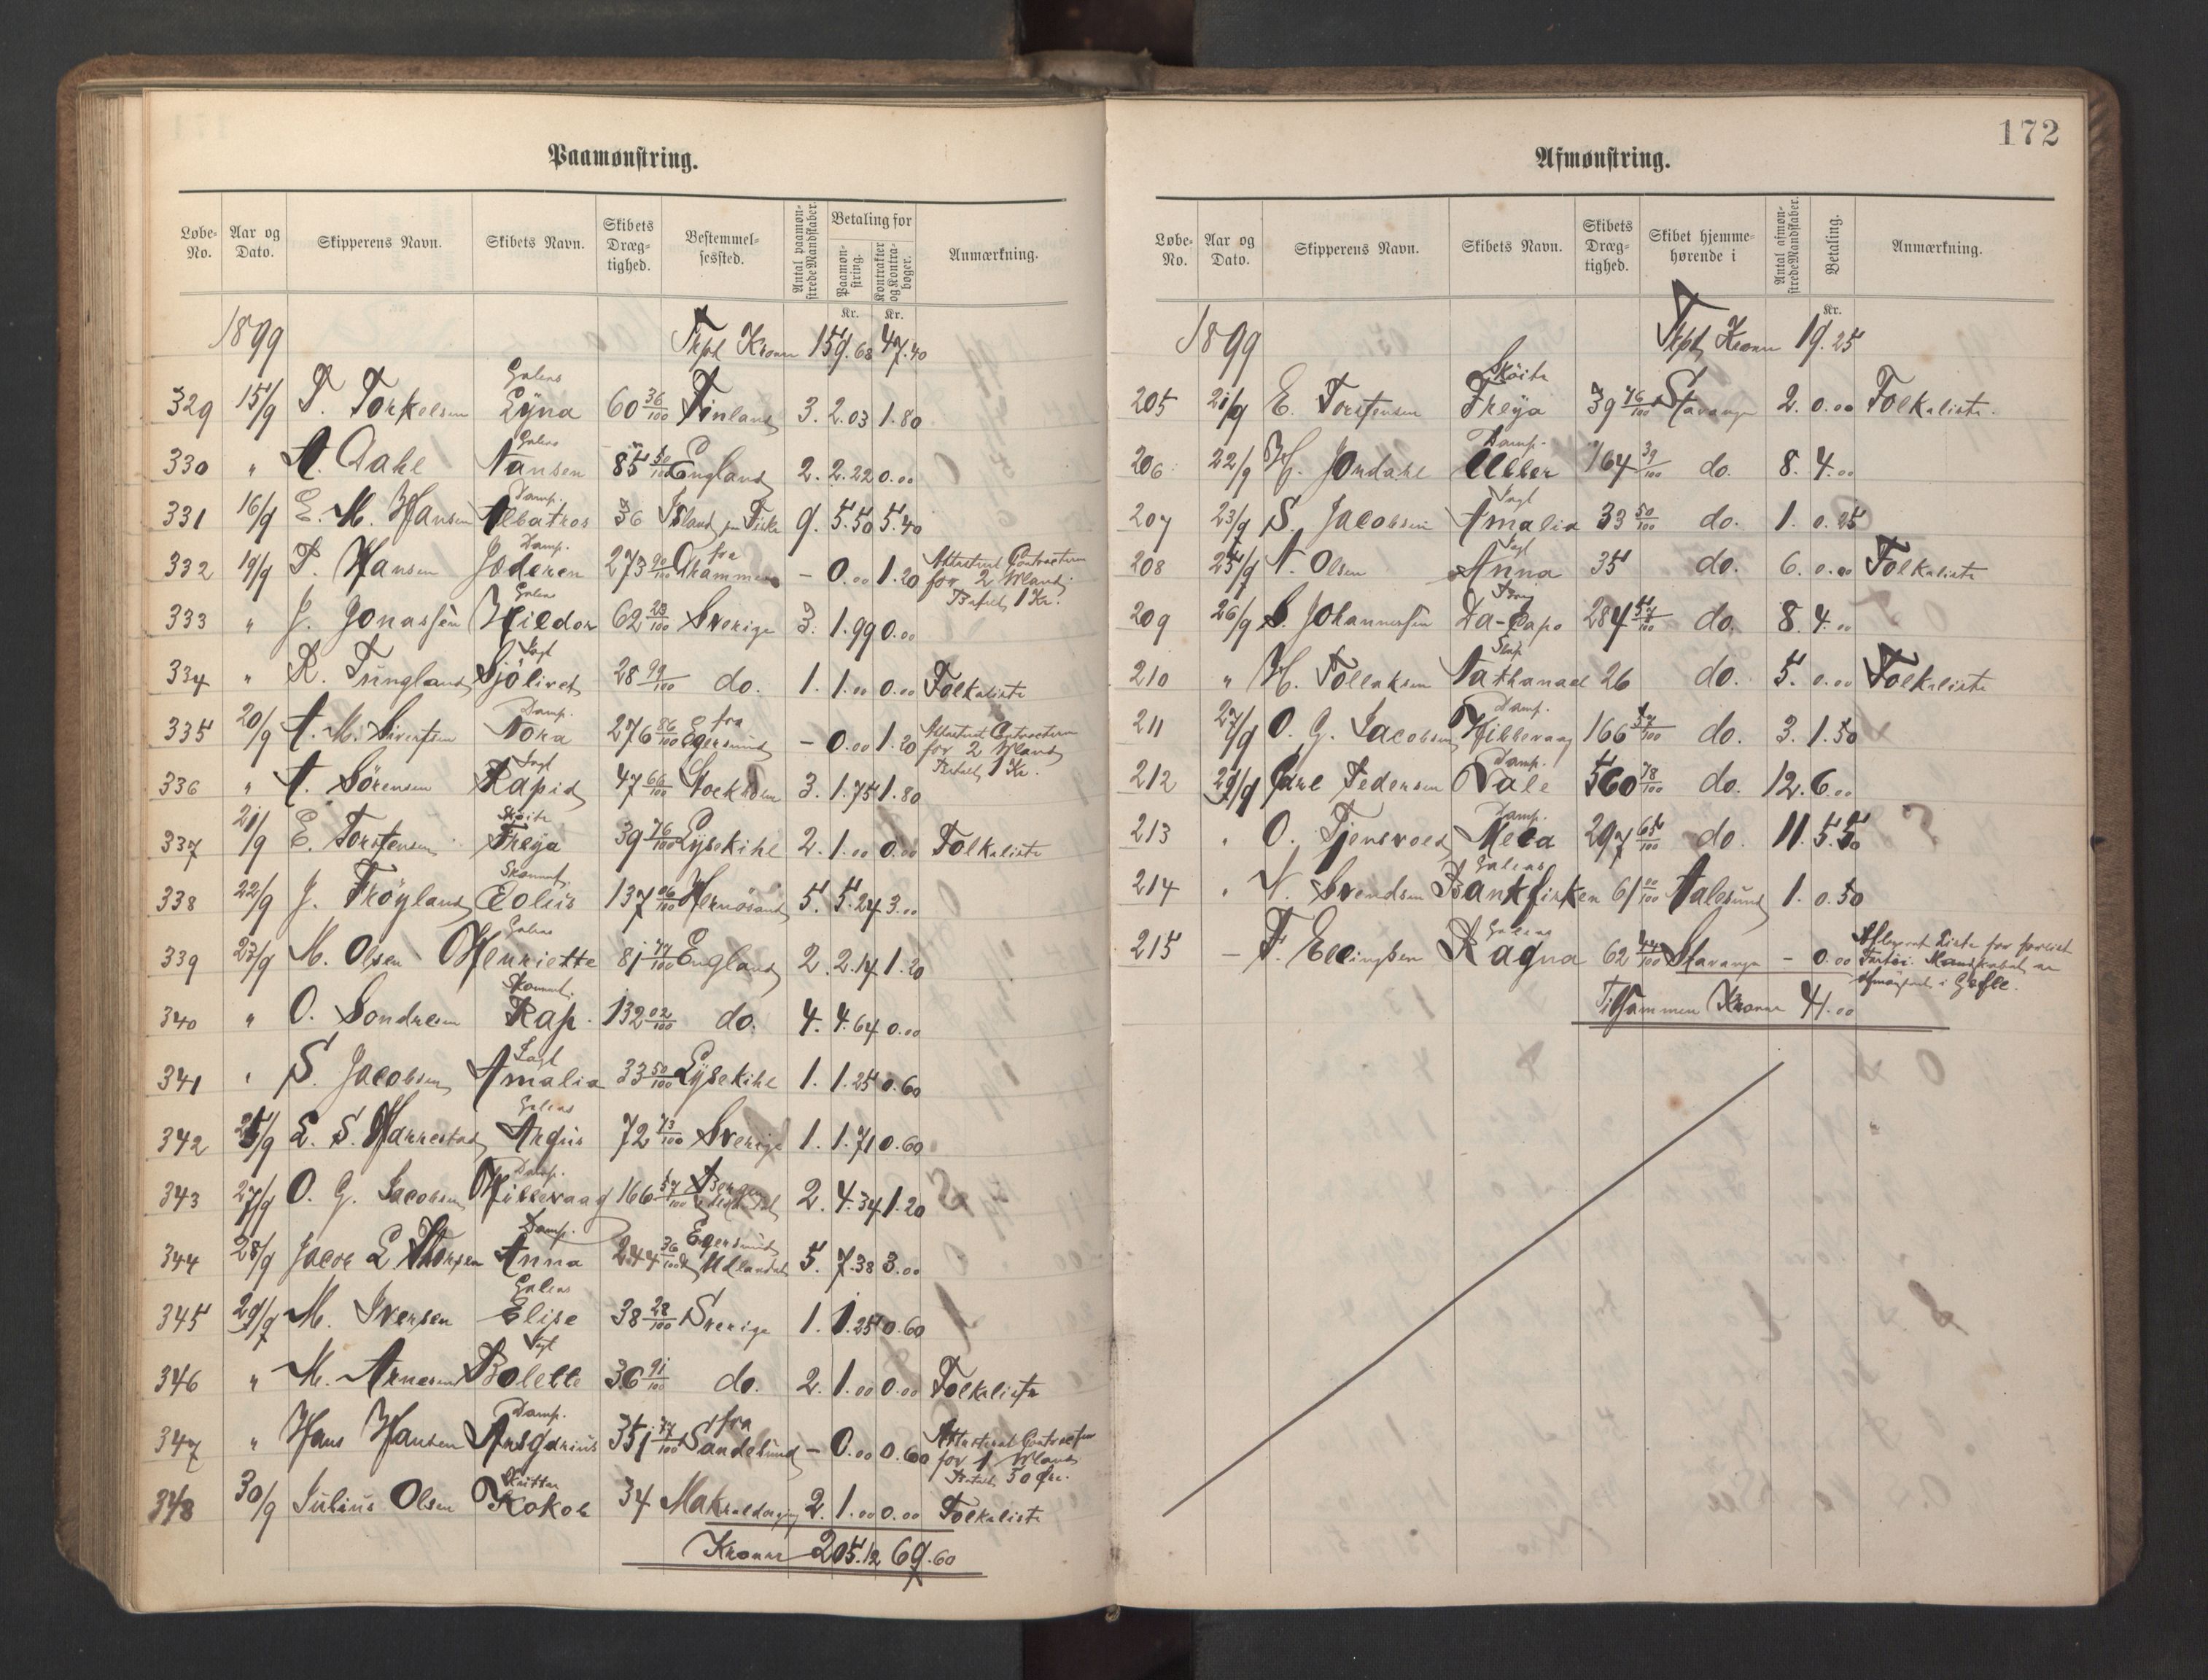 Paamønstring.
Løbe-No. Aar og Dato. Skipperens Navn. Skibets Navn. Skibets Dræg-tighed. Bestemmel-sessted. Antal paamøn-strede Mandskaber. Betaling for Paamøn-string. Kontrakter og Kontra-bøger. Anmærkning.
Kr. Kr.
1899 Trpt Kroner 159.68 47.40
329 15/9 T. Torkelsen Galeas Lyna 60 36/100 Finland 3. 2.03 1.80
330 " A. Aahl Galeas Nansen 85 50/100 England 2. 2.22 0.00
331 16/9 E. M. Hansen Damp. Albatros 36 Island paa Fiske 9. 5.50 5.40
332 19/9 T. Hansen Damp. Jæderen 273 90/100 fra - 0.00 1.20 Attesteret Contracten for 2 Mand. Betalt 1 Kr.
333 " J. Jonassen Galeas Hildor 62 23/100 Sverige 3. 1.99 0.00
334 " R. Tungland Jagt Sjølivet 28 99/100 do. 1. 1.00 0.00 Folkeliste
335 20/9 A. M. Sivertsen Damp. Nora 276 86/100 fra Egersund - 0.00 1.20 Attesteret Contracten for 2 Mand Betalt 1 Kr.
336 " A. Sörensen Jagt Rapid 47 66/100 Stockholm 3. 1.75 1.80
337 21/9 E. Torstensen Skøite Freya 39 76/100 Lysekihl 2. 1.00 0.00 Folkeliste
338 22/9 J. Fröyland Skonnert Eolus 137 06/100 Hernösand 5. 5.24 3.00
339 23/9 M. Olsen Galeas Henriette 81 74/100 England 2. 2.14 1.20
340 " O. Sondresen Skonnert. Rap. 132 02/100 do. 4. 4.64 0.00
341 " S. Jacobsen Jagt Amalia 33 50/100 Lysekihl 1. 1.25 0.60
342 25/9 L. S. Harrestad Galeas Argus 72 73/100 Sverige 1. 1.71 0.60
343 27/9 O. G. Jacobsen Damp. Hillevaag 166 57/100 Bergen 2. 4.34 1.20
344 28/9 Jacob L Thorsen Damp. Anna 244 36/100 Egersund & Udlandet 5. 7.38 3.00
345 29/9 M. Iversen Galeas Elise 38 28/100 Sverige 1. 1.25 0.60
346 " M. Arnesen Jagt Bolette 36 91/100 do. 2. 1.00 0.00 Folkeliste
347 " Hans Hansen Damp. Ansgarius 351 77/100 fra Sandesund - 0.00 0.60 Attesteret Contracten for 1 Mand Betalt 50 Øre.
348 30/9 Julius Olsen Kutter Kokob 34 2. 1.00 0.00 Folkeliste
Kroner 205.12 69.60
172
Afmønstring.
Løbe-No. Aar og Dato. Skipperens Navn. Skibets Navn. Skibets Dræg-tighed. Skibet hjemme-hørende i Antal afmøn-strede Mandskaber. Betaling. Anmærkning.
Kr.
1899 Trpt Kroner 19.25
205 21/9 E. Torstensen Skøite Freya 39 76/100 Stavanger 2. 0.00 Folkeliste.
206 22/9 H. Jondahl Damp. Ebber 164 39/100 do. 8. 4.00
207 23/9 S. Jacobsen Jagt Amalia 33 50/100 do. 1. 0.25
208 25/9 N. Olsen Jagt Anna 35 do. 6. 0.00 Folkeliste
209 26/9 S. Johannessen Brig Da-Capo 284 57/100 do. 8. 4.00
210 " H. Tollaksen Slup Nathanael 26 do. 5. 0.00 Folkeliste
211 27/9 O. G. Jacobsen Damp. Hillevaag 166 57/100 do. 3. 1.50
212 29/9 Carl Pedersen Damp. Vale 560 78/100 do. 12. 6.00
213 " O. Tjensvold Damp. Mela 297 65/100 do. 11. 5.50
214 " N. Svendsen Galeas Bankfisken 61 00/100 Aalesund 1. 0.50
215 - F. Ellingsen Galeas Ragna 62 44/100 Stavanger - 0.00 Afleveret Liste for forlist Fartöi. Mandskabet er afmønstret i Gefle.
Tilsammen Kroner 41.00